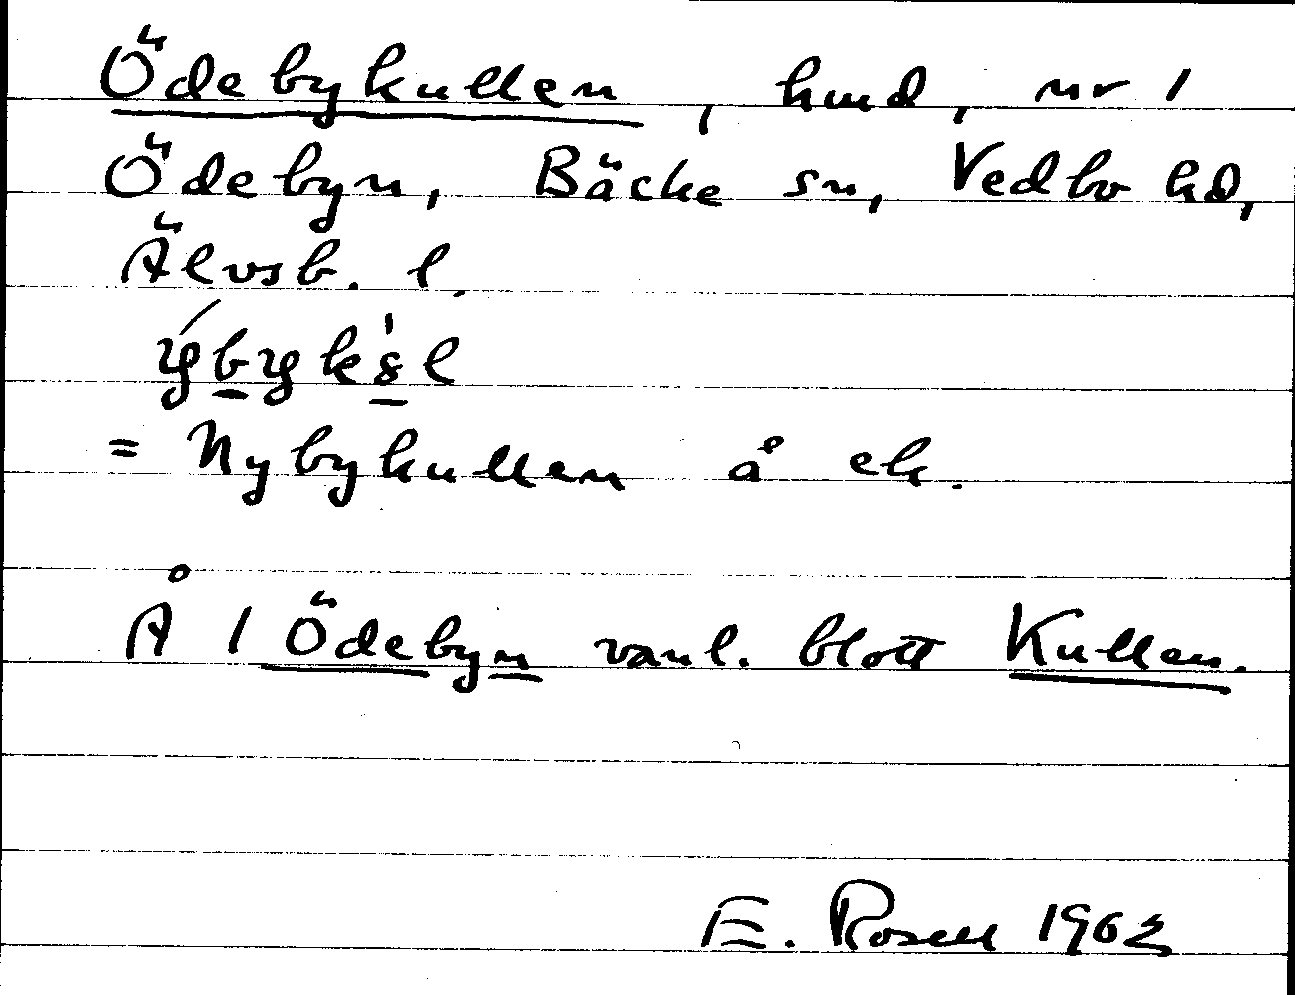 Ödebykullen, hmd, nr 1
Ödebyn, Bäcke sn, Vedbo hd,
Älvsb. l.
= Nybykullen å ek.
Å 1 Ödebyn vanl. blott Kullen.
E. Rosell 1963